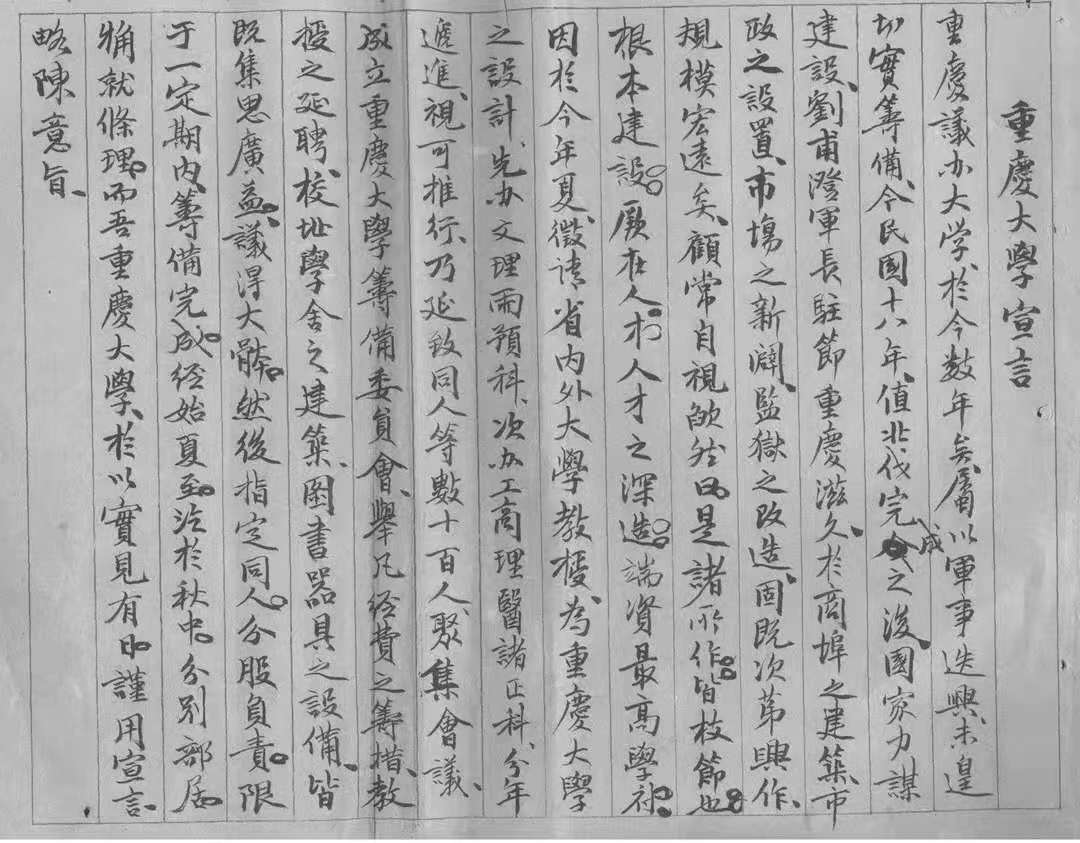 重慶大學宣言
重慶議办大学、於今数年矣、屬以軍事迭興、未遑
切實籌備、今民國十八年、值北伐完成之後、國家力謀
建設、劉甫澄軍長駐節重慶滋久、於商埠之建築、市
政之設置、市場之新闢、監獄之改造、固既次第興作、
規模宏遠矣、顧常自視欿然曰、是諸所作、皆枝節也。
根本建設。厥在人才、人才之深造。端資最高學府。
因於今年夏、徵请省内外大學教授、為重慶大學
之設計、先办文理兩預科、次办工商理醫諸正科、分年
遞進、視可推行、乃延致同人等數十百人、聚集會議、
成立重慶大學籌備委員會、舉凡经費之籌措、教
授之延聘、校址學舍之建築、圖書器具之設備、皆
既集思廣益、議得大體。然後指定同人。分股負責。限
于一定期内、籌備完成。经始夏至。迄於秋中。分别部居。
觕就條理。而吾重慶大學、於以實見有日。謹用宣言、
略陳意旨、